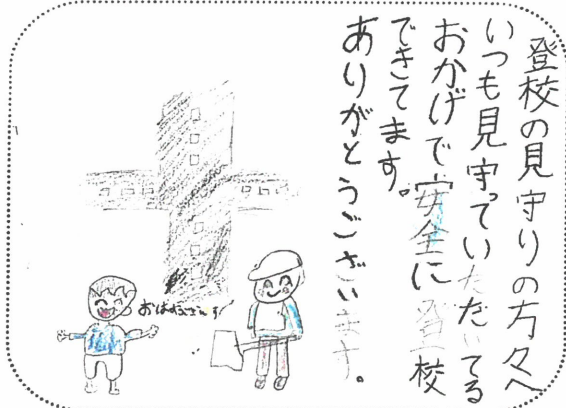 登校の見守りの方々へ
いつも見守っていただいてる
おかげで安全に登校
できてます。
ありがとうございます。
おはようございます!